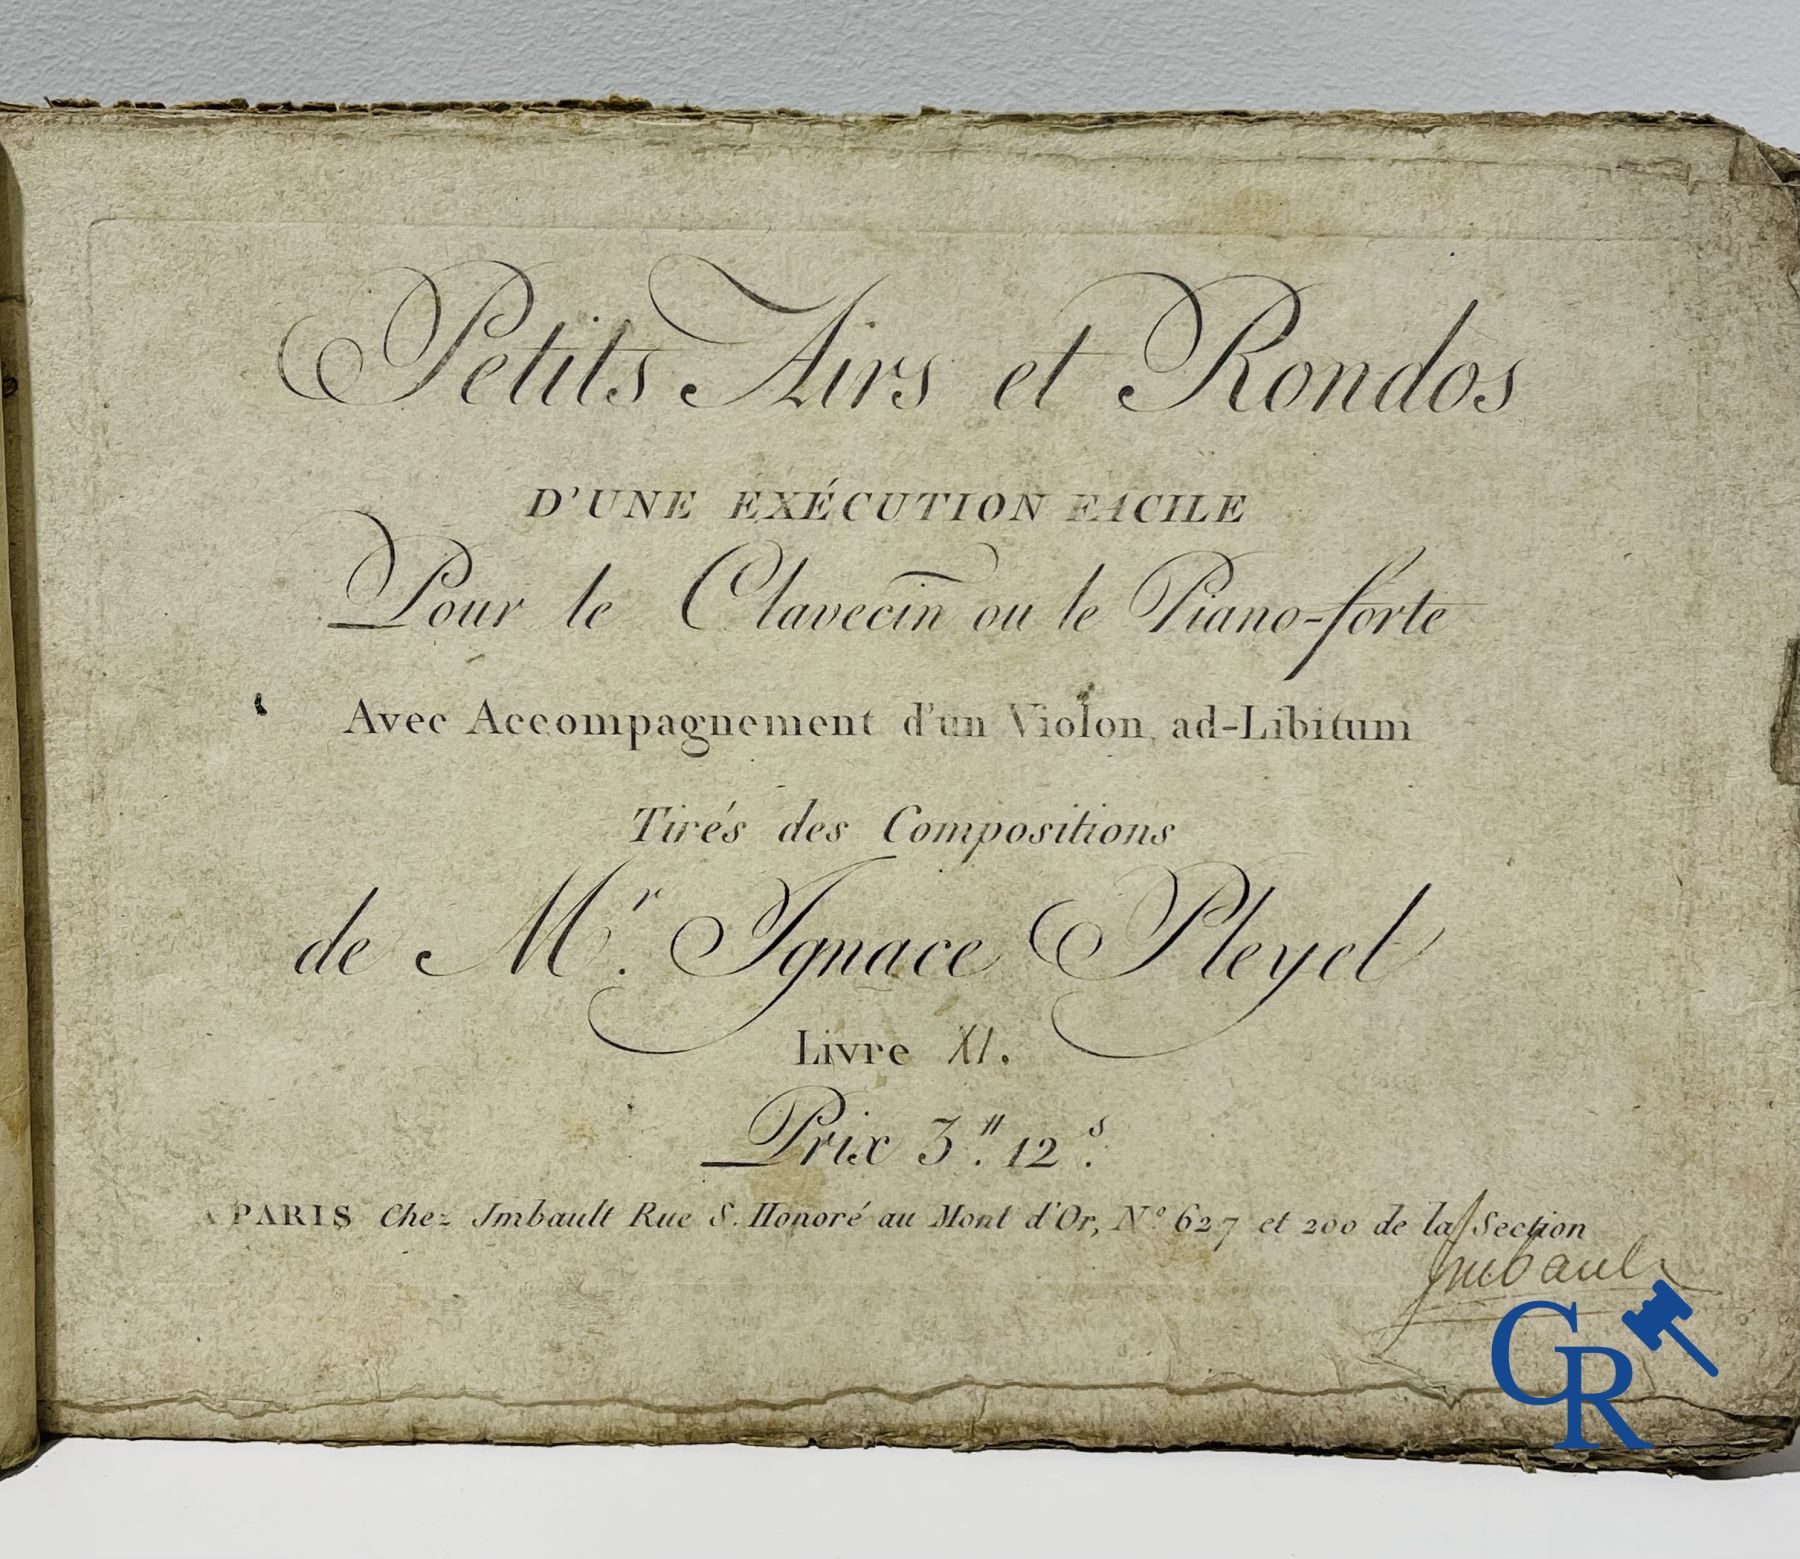 Petits Airs et Rondos
D'UNE EXÉCUTION FACILE
Pour le Clavecin ou le Piano-forte
Avec Accompagnement d'un Violon, ad-Libitum
Tirés des Compositions
de Mr. Ignace Pleyel
Livre XI.
Prix 3.# 12.s
A PARIS Chez Imbault Rue S. Honoré au Mont d'Or, No 627 et 200 de la Section
Imbault
CR